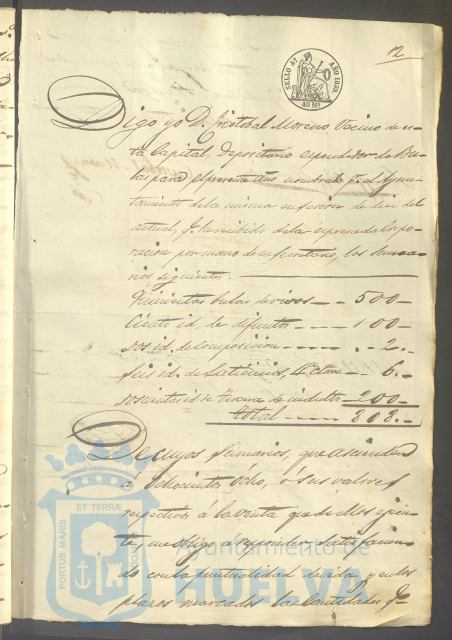 12
SELLO 4º AÑO 1859
40 Ms
Digo yo D. Cristobal Moreno Vecino de es-
ta Capital, Depositario espendedor de Bu-
las para el presente año nombrado pr. el Ayun-
tamiento de la misma en sesion de diez del
actual, q. he recibido de la espresada Corpo-
racion por mano de su Secretario, los Suma-
rios siguientes.
Quinientas bulas de vivos - - 500 -
Ciento id. de difuntos - - - - 100 -
Dos id. de composicion - - - - . - 2. -
Seis id. de Lacticinios, 4ª clase - 6. -
Doscientas id de tercera de indulto 200 -
total - - - - 808. -
De cuyos Sumarios, que ascienden
a Ochocientos Ocho, ó sus valores
respectivos á la venta que de ellos ejecu-
te, me obligo a responder satisfacien-
do con la puntualidad devida, y en los
plazos marcados las Cantidades q.
PORTUS MARIS ET TERRAE CUSTODIA
Ayuntamiento de
HUELVA